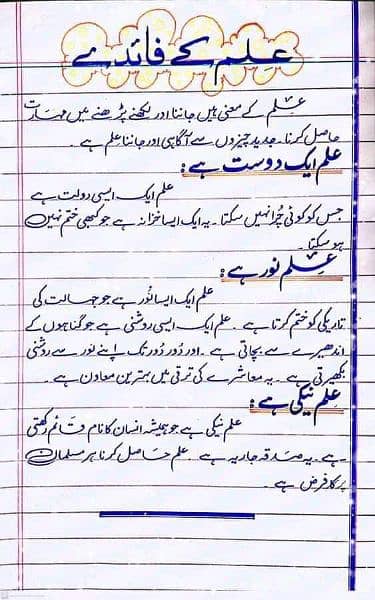 علم کے فائدے
علم کے معنی ہیں جاننا اور لکھنے پڑھنے میں مہارت
حاصل کرنا۔ جدید چیزوں سے آگاہی اور جاننا علم ہے۔
علم ایک دوست ہے:
علم ایک ایسی دولت ہے
جس کو کوئی چُرا نہیں سکتا۔ یہ ایک ایسا خزانہ ہے جو کبھی ختم نہیں
ہو سکتا۔
علم نور ہے:
علم ایک ایسا نُور ہے جو جہالت کی
تاریکی کو ختم کرتا ہے۔ علم ایک ایسی روشنی ہے جو گناہوں کے
اندھیرے سے بچاتی ہے۔ اور دُور دُور تک اپنے نور سے روشنی
بکھیرتی ہے۔ یہ معاشرے کی ترقی میں بہترین معاون ہے۔
علم نیکی ہے:
علم نیکی ہے جو ہمیشہ انسان کا نام قائم رکھتی
ہے۔ یہ صدقہ جاریہ ہے۔ علم حاصل کرنا ہر مسلمان
پر فرض ہے۔